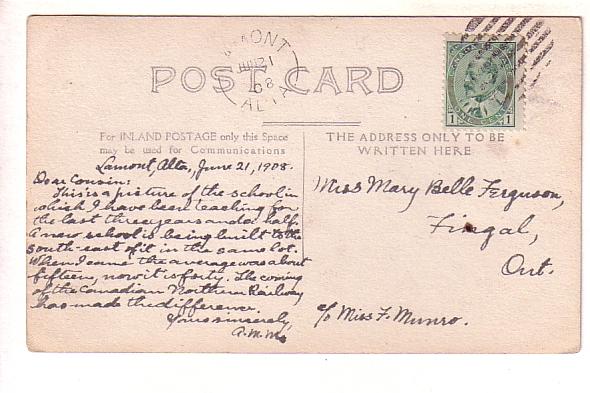 LAMONT
JUN 21
08
ALTA
POST CARD
1 1
For INLAND POSTAGE only this Space
may be used for Communications
THE ADDRESS ONLY TO BE
WRITTEN HERE
Lamont, Alta., June 21, 1908.
Dear Cousin:
This is a picture of the school in
which I have been teaching for
the last three years and a half.
A new school is being built to the
south-east of it in the same lot.
When I came the average was about
fifteen, now it is forty. The coming
of the Canadian Northern Railway
has made the difference.
Yours sincerely,
Miss Mary Belle Ferguson,
Fingal,
Ont.
c/o Miss F. Munro.